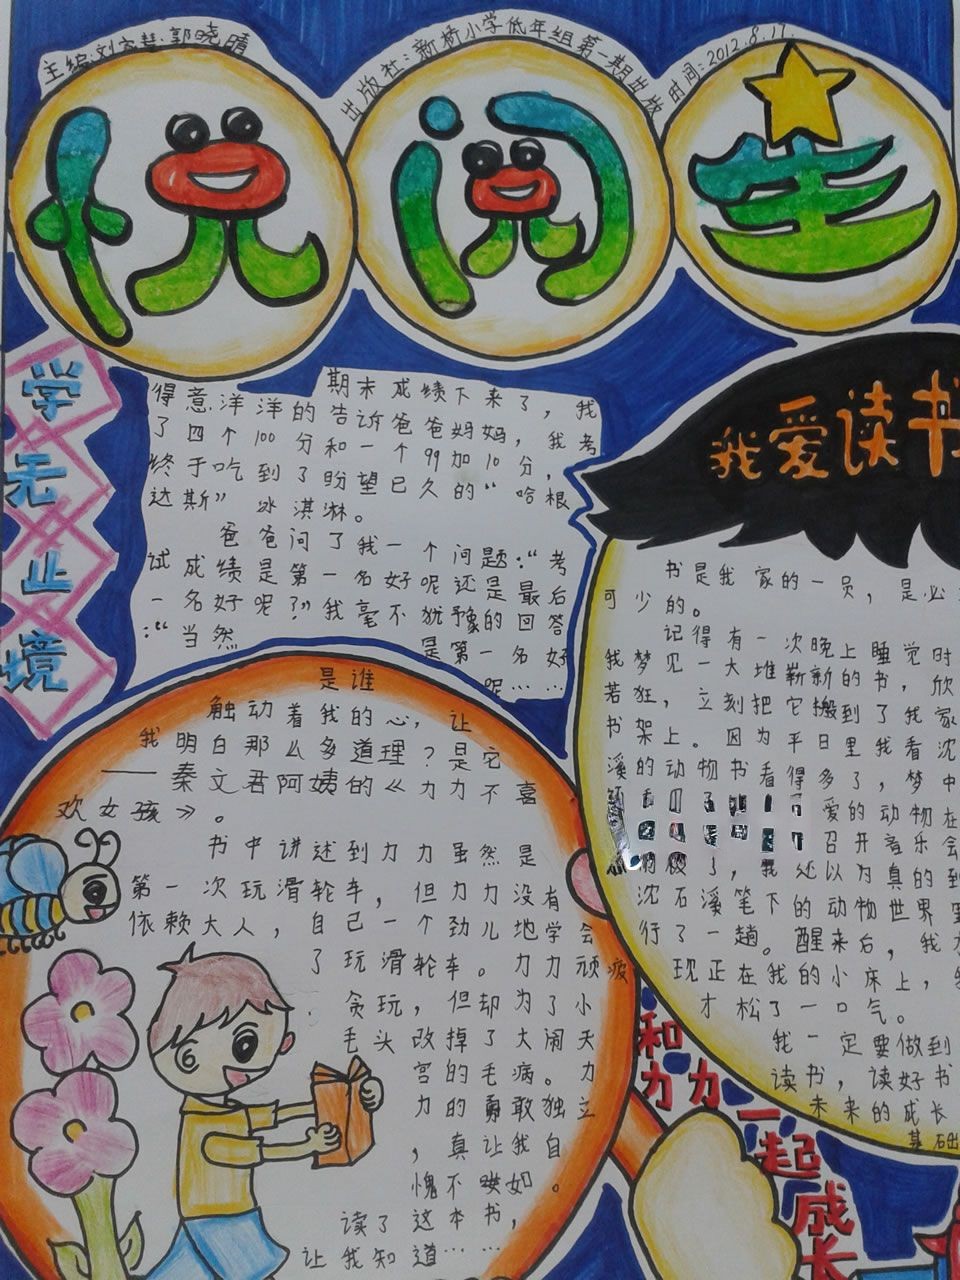 主编:刘
郭晓晴
出版社:新桥小学低年组第一期出版
时间:2012.8.17.
悦阅生
学无止境
期末成绩下来了,我
得意洋洋的告诉爸爸妈妈,我考
了四个100分和一个99加10分,
终于吃到了盼望已久的“哈根
达斯”冰淇淋。
爸爸问了我一个问题:“考
试成绩是第一名好呢还是最后
一名好呢?”我毫不犹豫的回答
:“当然是第一名好
呢……
我爱读书
书是我家的一员,是必
可少的。
记得有一次晚上睡觉时
我梦见一大堆崭新的书,欣
若狂,立刻把它搬到了我家
书架上。因为平日里我看沈
溪的动物书看得多了,梦中
爱的动物在
召开音乐会
了,我还以为真的到
沈石溪笔下的动物世界里
行了一趟。醒来后,我
现正在我的小床上,我
才松了一口气。
我一定要做到
读书,读好书
未来的成长
基础
是谁
触动着我的心,让
我明白那么多道理?是它
——秦文君阿姨的《力力不喜
欢女孩》。
书中讲述到力力虽然是
第一次玩滑轮车,但力力没有
依赖大人,自己一个劲儿地学会
了玩滑轮车。力力顽疲
贪玩,但却为了小
毛头改掉了大闹天
宫的毛病。力
力的勇敢独立
,真让我自
愧不如。
读了这本书,
让我知道……
和力力一起成长